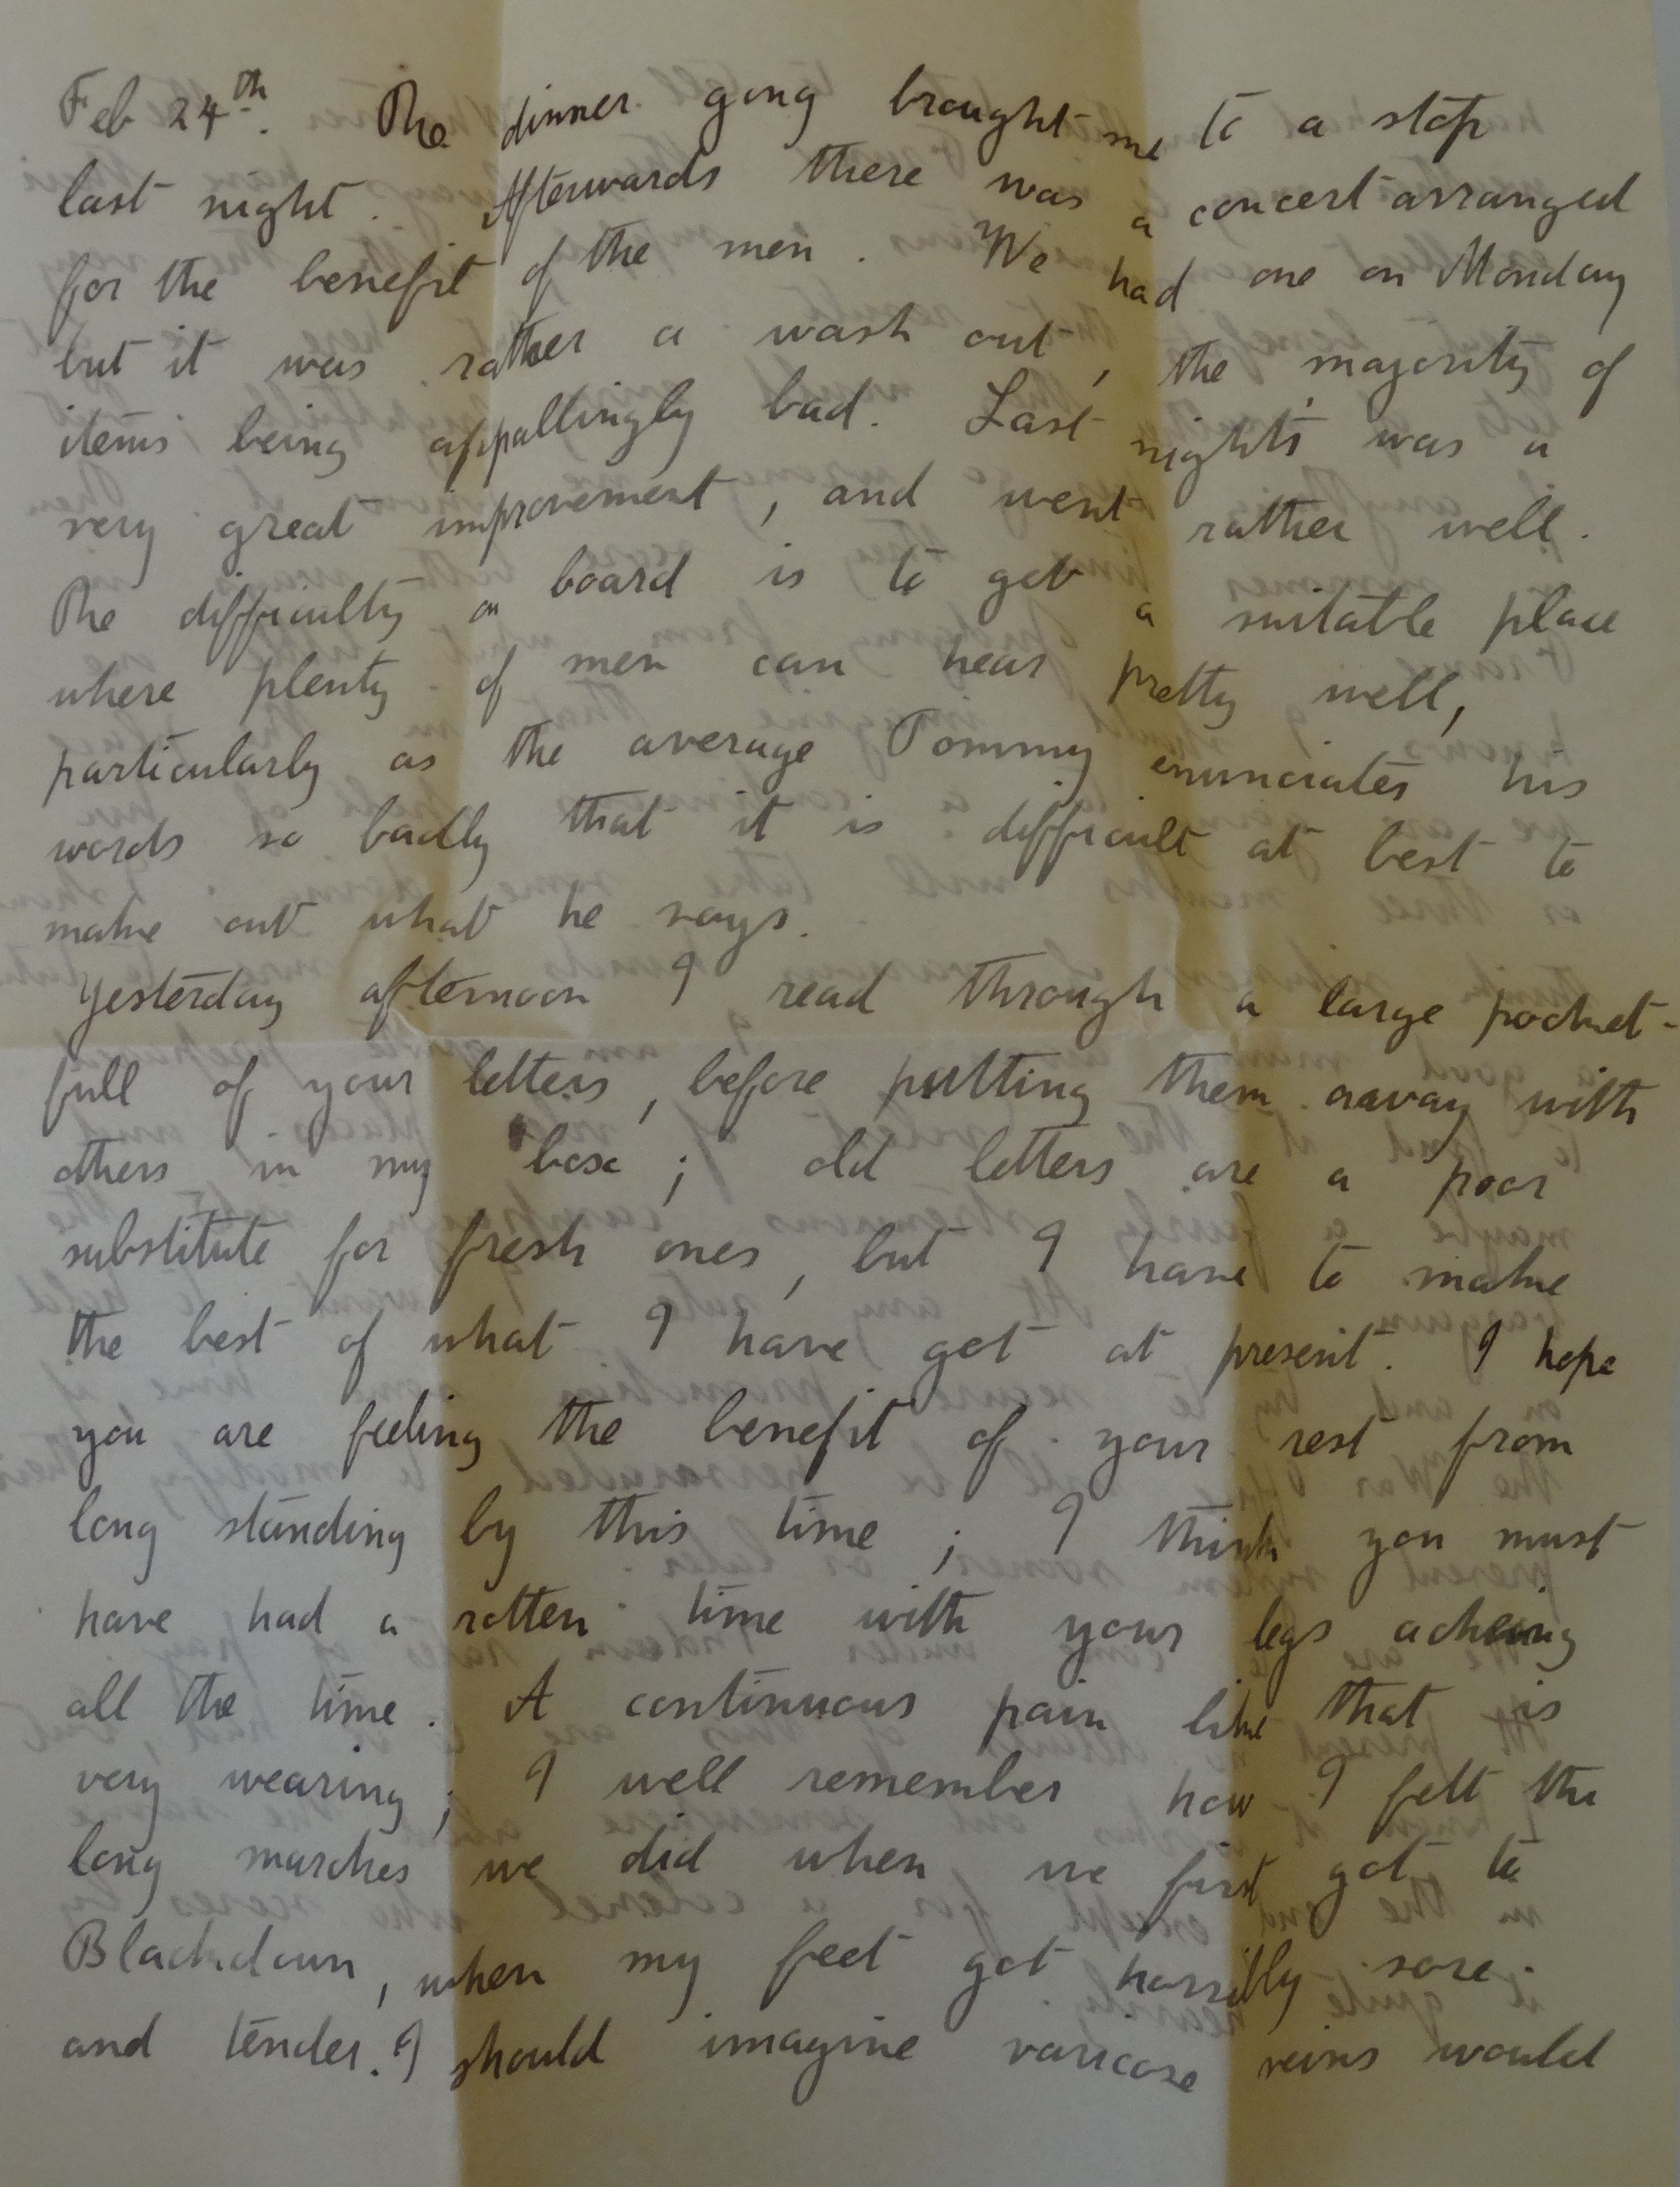 Feb 24th. The dinner gong brought me to a stop
last night. Afterwards there was a concert arranged
for the benefit of the men. We had one on Monday
but it was rather a wash out, the majority of
items being appallingly bad. Last night's was a
very great improvement, and went rather well.
The difficulty on board is to get a suitable place
where plenty of men can hear pretty well,
particularly as the average Tommy enunciates his
words so badly that it is difficult at best to
make out what he says.
Yesterday afternoon I read through a large pocket-
full of your letters, before putting them away with
others in my box; old letters are a poor
substitute for fresh ones, but I have to make
the best of what I have got at present. I hope
you are feeling the benefit of your rest from
long standing by this time; I think you must
have had a rotten time with your legs acheing
all the time. A continuous pain like that is
very wearing; I well remember how I felt the
long marches we did when we first got to
Blackdown, when my feet got horribly sore
and tender. I should imagine varicose veins would